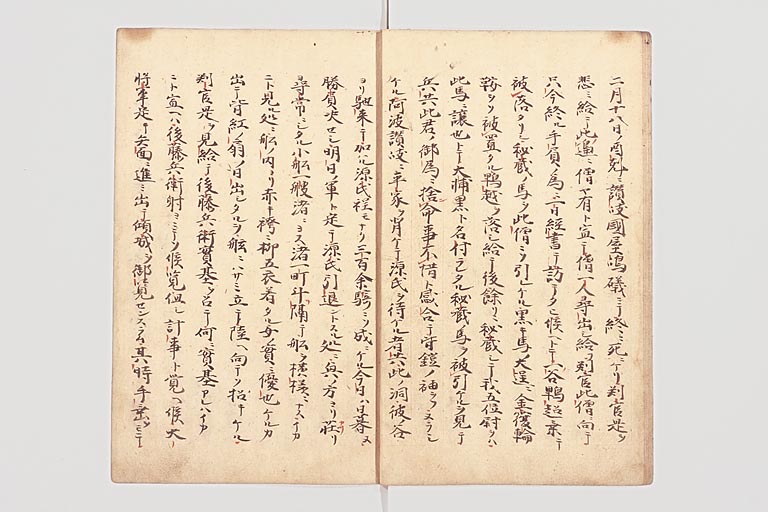 二月十八日ノ酉剋ニ讃岐國屋嶋礒ニテ終ニ死ニケリ判官是ヲ
悲ミ給テ此邊ニ僧ヤ有ト宣テ僧一人尋出シ給ヘリ判官此僧ニ向テ
只今終ル手負ノ為ニ一日経書テ訪テタヒ候ヘトテ一谷鴨越ニ乗テ
被落タリシ秘蔵ノ馬ヲ此僧ニ引レケル黒キ馬ノ大逞ニ金覆輪
鞍ヲソ被置タル鴨越ヲ落シ給テ後餘リニ秘蔵シテ我五位尉ヲハ
此馬ニ譲也トテ大輔黒ト名付ラレタル秘蔵馬ヲ被引ケルヲ見テ
兵共此君ノ御為ニ捨命事不惜ト感合テ皆鎧ノ袖ヲソヌラシ
ケル阿波讃岐ニ平家ヲ背テ源氏ヲ待ケル者共此ノ洞彼谷
ヨリ馳来テ加ル源氏程モナク三百余騎ニソ成ニケル今日ハ日暮ヌ
勝負决セン明日ノ軍ト定テ源氏引退ントスル処ニ奥ノ方ヨリ荘リ
尋常ニシタル小船一艘渚ニヨス渚一町斗隔テ船ヲ横様ニナス
ニト見ル処ニ船ノ内ヨリ赤キ袴ニ柳五衣着タル女ノ實ニ優也ケルカ
出テ皆紅ノ扇ノ日出シタルヲ舷ニハサミ立テ陸ヘ向テソ招キケル
判官是ヲ見給テ後藤兵衛實基ヲ召テ何ニ實基アレハイカ
ニト宣ヘハ後藤兵衛射ヨトニテソ候覧但シ計事ト覚ヘ候大
将軍是ヲ矢面ニ進ミ出テ傾城ヲ御覧センスラム其時手垂ヲ以テ